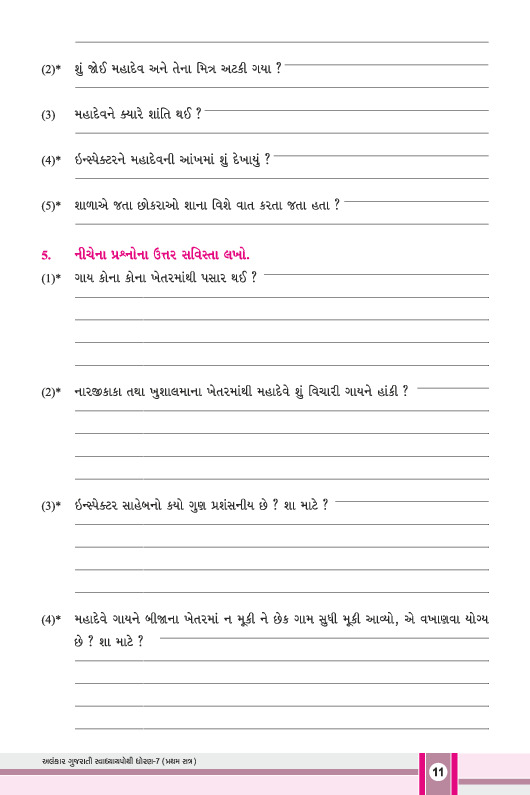 (2)* શું જોઈ મહાદેવ અને તેના મિત્ર અટકી ગયા ?
(3) મહાદેવને ક્યારે શાંતિ થઈ ?
(4)* ઇન્સ્પેક્ટરને મહાદેવની આંખમાં શું દેખાયું ?
(5)* શાળાએ જતા છોકરાઓ શાના વિશે વાત કરતા જતા હતા ?
5. નીચેના પ્રશ્નોના ઉત્તર સવિસ્તા લખો.
(1)* ગાય કોના કોના ખેતરમાંથી પસાર થઈ ?
(2)* નારજીકાકા તથા ખુશાલમાના ખેતરમાંથી મહાદેવે શું વિચારી ગાયને હાંકી ?
(3)* ઇન્સ્પેક્ટર સાહેબનો કયો ગુણ પ્રશંસનીય છે ? શા માટે ?
(4)* મહાદેવે ગાયને બીજાના ખેતરમાં ન મૂકી ને છેક ગામ સુધી મૂકી આવ્યો, એ વખાણવા યોગ્ય
છે ? શા માટે ?
અલંકાર ગુજરાતી સ્વાધ્યાયપોથી ધોરણ-7 (પ્રથમ સત્ર)
11